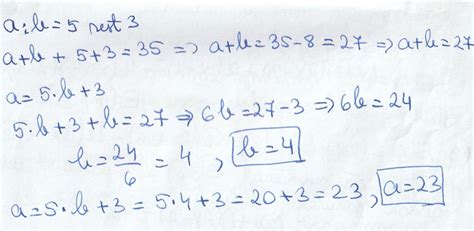 a:b=5 rest 3
a+b+5+3=35 => a+b=35-8=27 => a+b=27
a=5·b+3
5·b+3+b=27 => 6b=27-3 => 6b=24
b=24/6=4, b=4
a=5·b+3=5·4+3=20+3=23, a=23